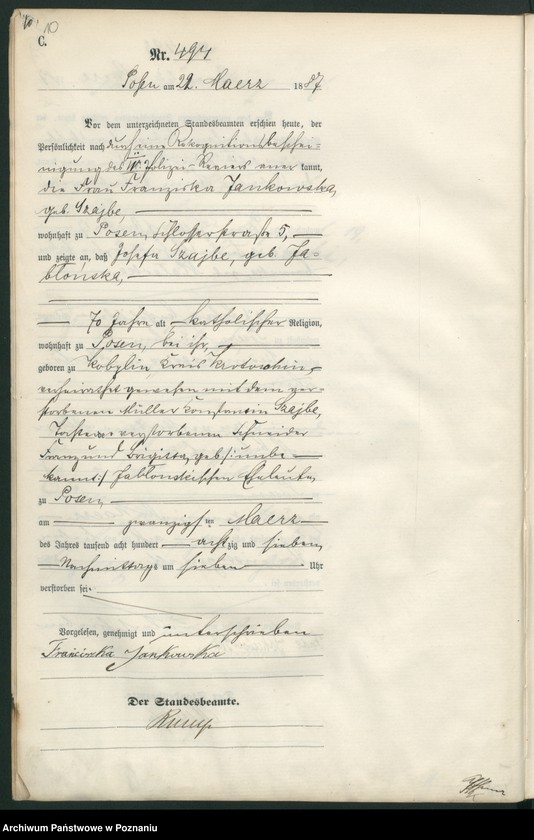 10
C.
Nr. 497
Posen am 22. Maerz 1887
Vor dem unterzeichneten Standesbeamten erschien heute, der
Persönlichkeit nach durch eine Rekognitionsbeschei-
nigung des Polizei-Reviers aner kannt,
die Frau Franziska Jankowska,
geb. Szajbe,
wohnhaft zu Posen, Schlosserstraße 5,
und zeigte an, daß Josefa Szajbe, geb. Ja-
blonska,
70 Jahre alt, katholischer Religion,
wohnhaft zu Posen, bei ihr,
geboren zu Kobylin Kreis Krotoschin,
verheirathet gewesen mit dem ver-
storbenen Müller Constantin Szajbe,
Tochter der verstorbenen Schneider
Franz und Brigitta, geb. /:unbe-
kannt:/ Jablonskischen Eheleute,
zu Posen,
am zwanzigsten Maerz
des Jahres tausend acht hundert achtzig und sieben,
Nachmittags um sieben Uhr
verstorben sei.
Vorgelesen, genehmigt und unterschrieben
Franciszka Jankowska
Der Standesbeamte.
Archiwum Państwowe w Poznaniu